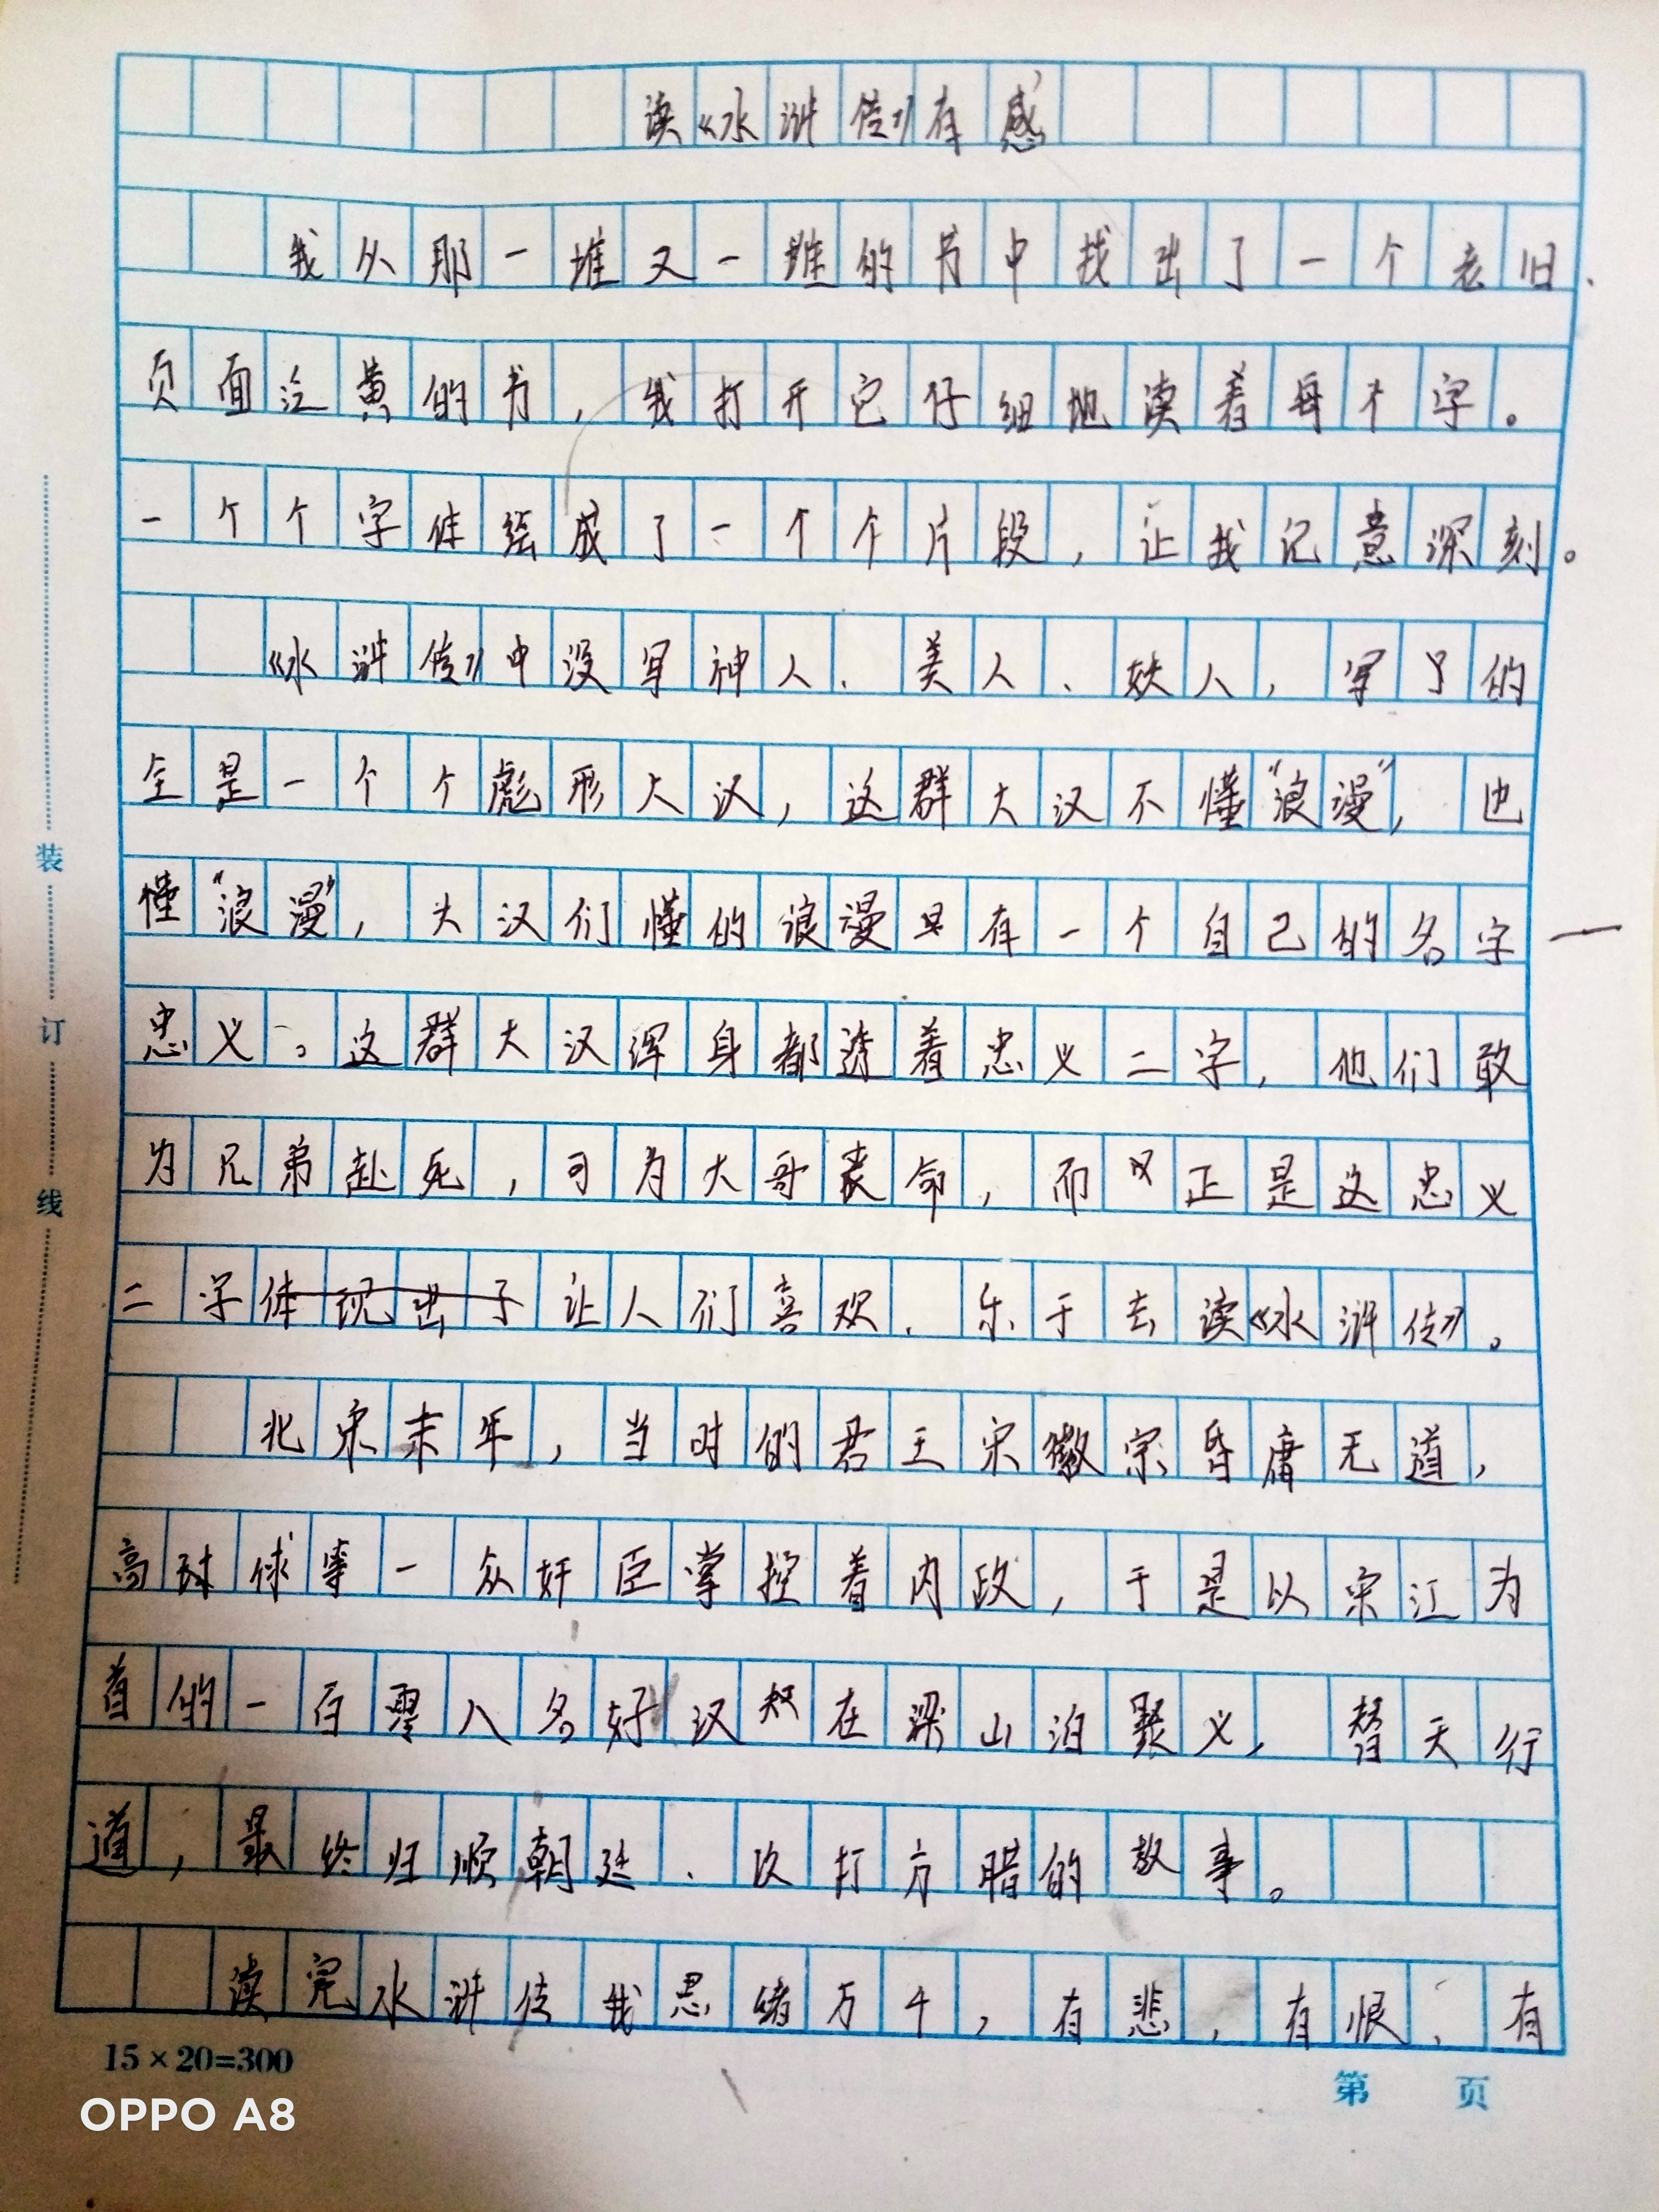 读《水浒传》有感
我从那一堆又一堆的书中找出了一个老旧、
页面泛黄的书，我打开它仔细地读着每个字。
一个个字体绘成了一个个片段，让我记意深刻。
《水浒传》中没写神人、美人、妖人，写了的
全是一个个彪形大汉，这群大汉不懂“浪漫”，也
懂“浪漫”，大汉们懂的浪漫只有一个自己的名字—
忠义。这群大汉浑身都透着忠义二字，他们敢
为兄弟赴死，可为大哥丧命，而又正是这忠义
二字体现出了让人们喜欢、乐于去读《水浒传》。
北宋末年，当时的君王宋徽宗昏庸无道，
高俅等一众奸臣掌控着内政，于是以宋江为
首的一百零八名好汉在梁山泊聚义，替天行
道，最终归顺朝廷、攻打方腊的故事。
读完水浒传我思绪万千，有悲，有恨，有
装
订
线
15×20=300
第 页
OPPO A8